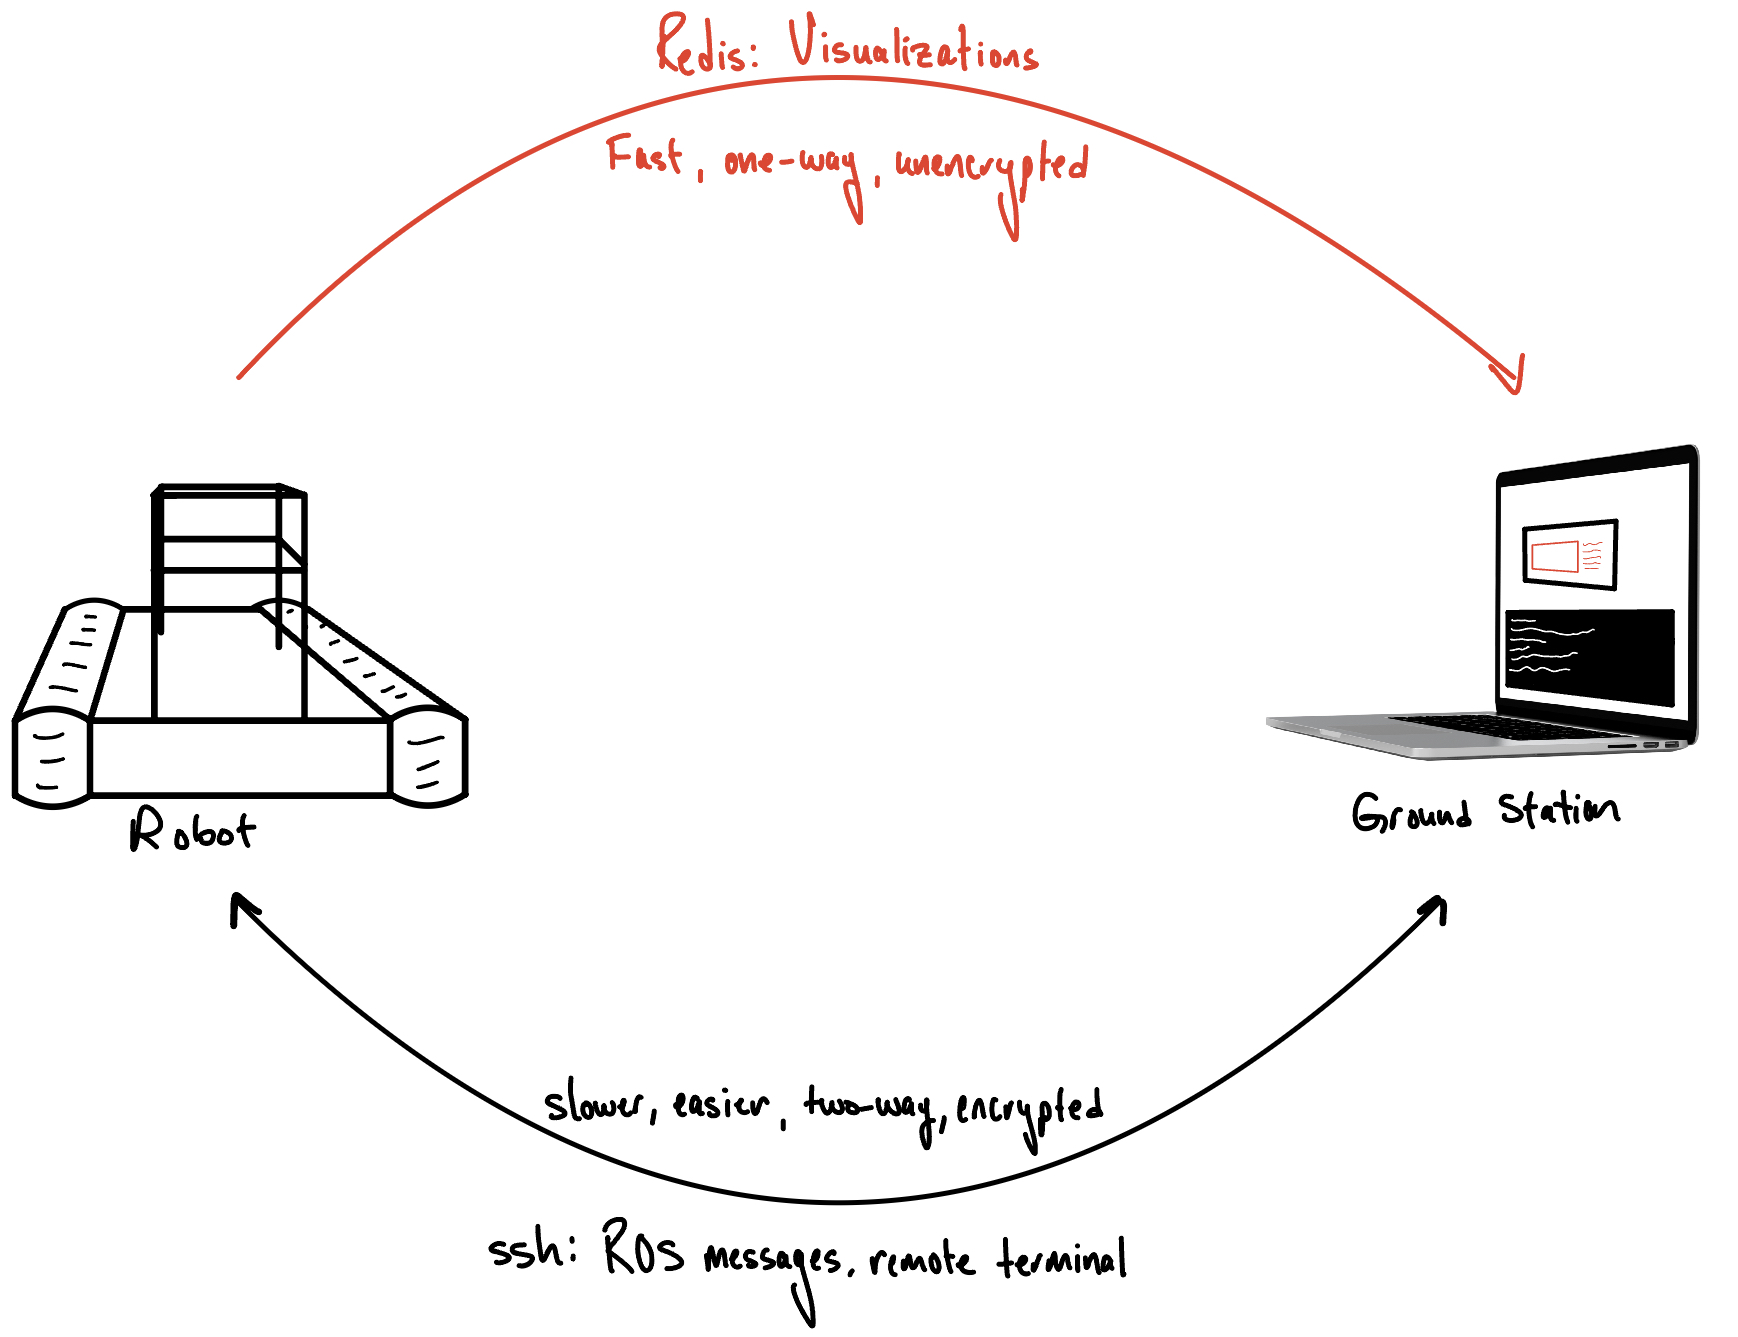 Redis: Visualizations
Fast, one-way, unencrypted
Robot
Ground Station
slower, easier, two-way, encrypted
ssh: ROS messages, remote terminal